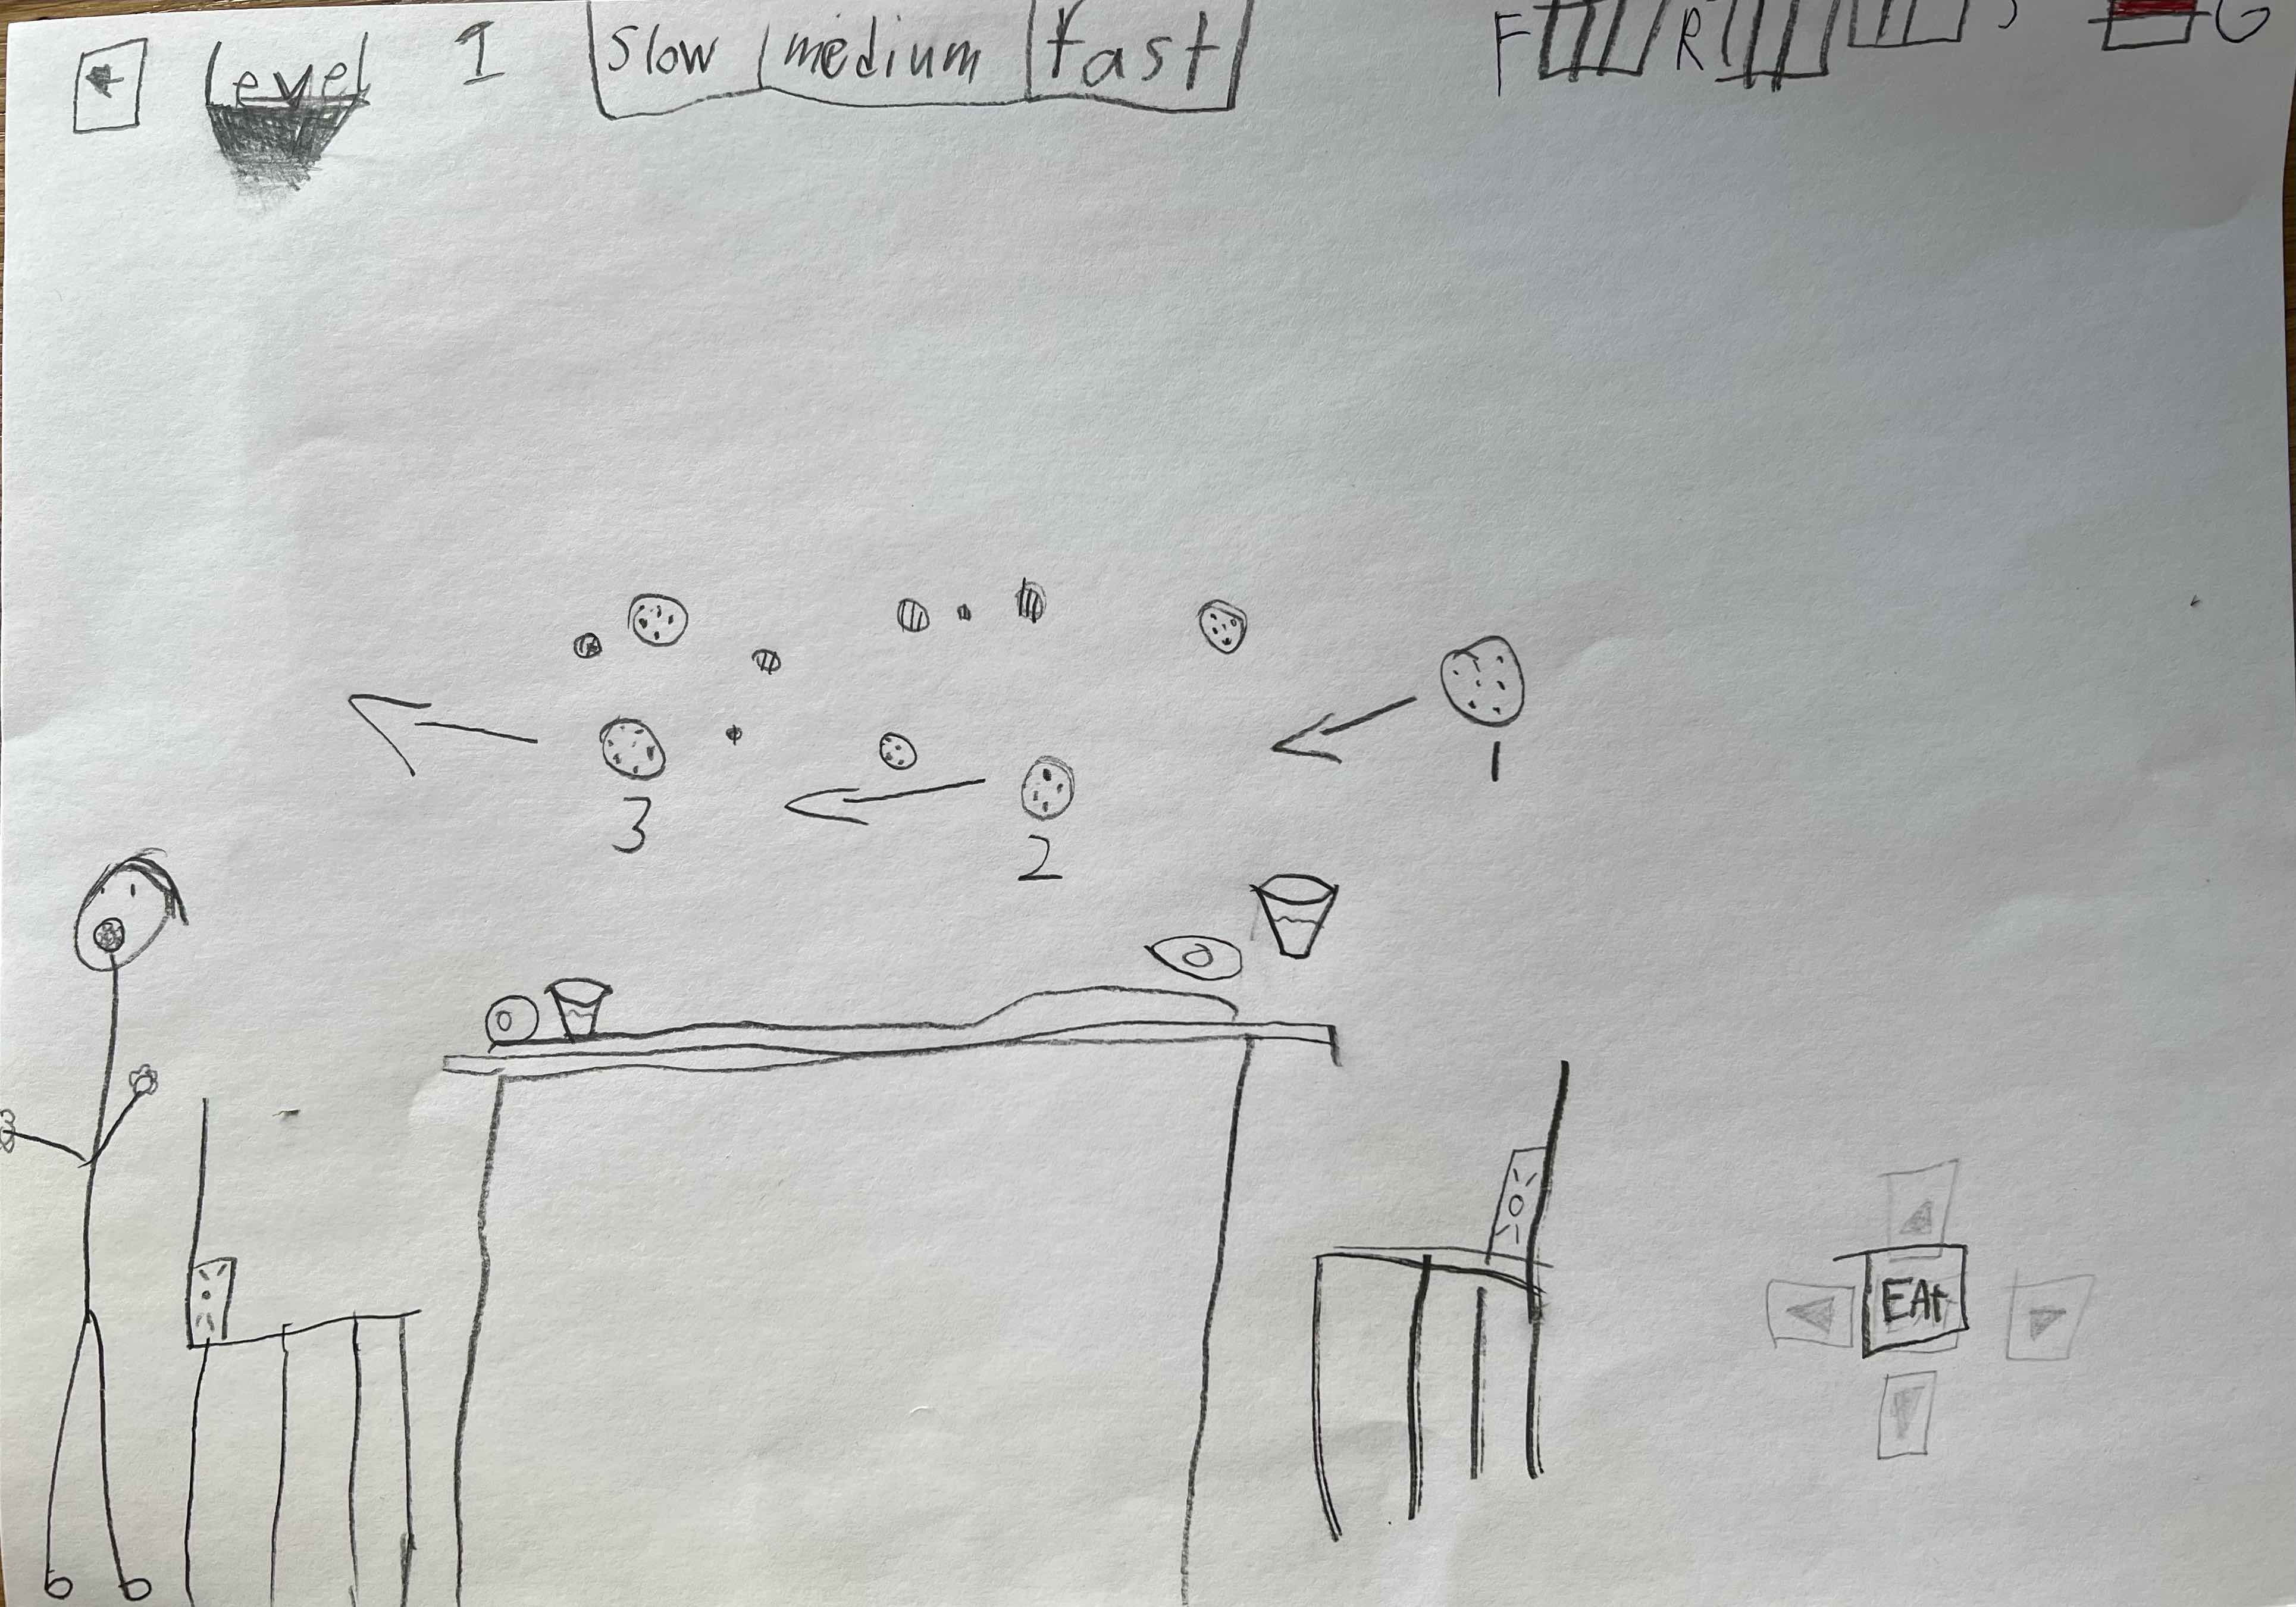 Level 1 slow medium fast F R G
3
1
2
EAt